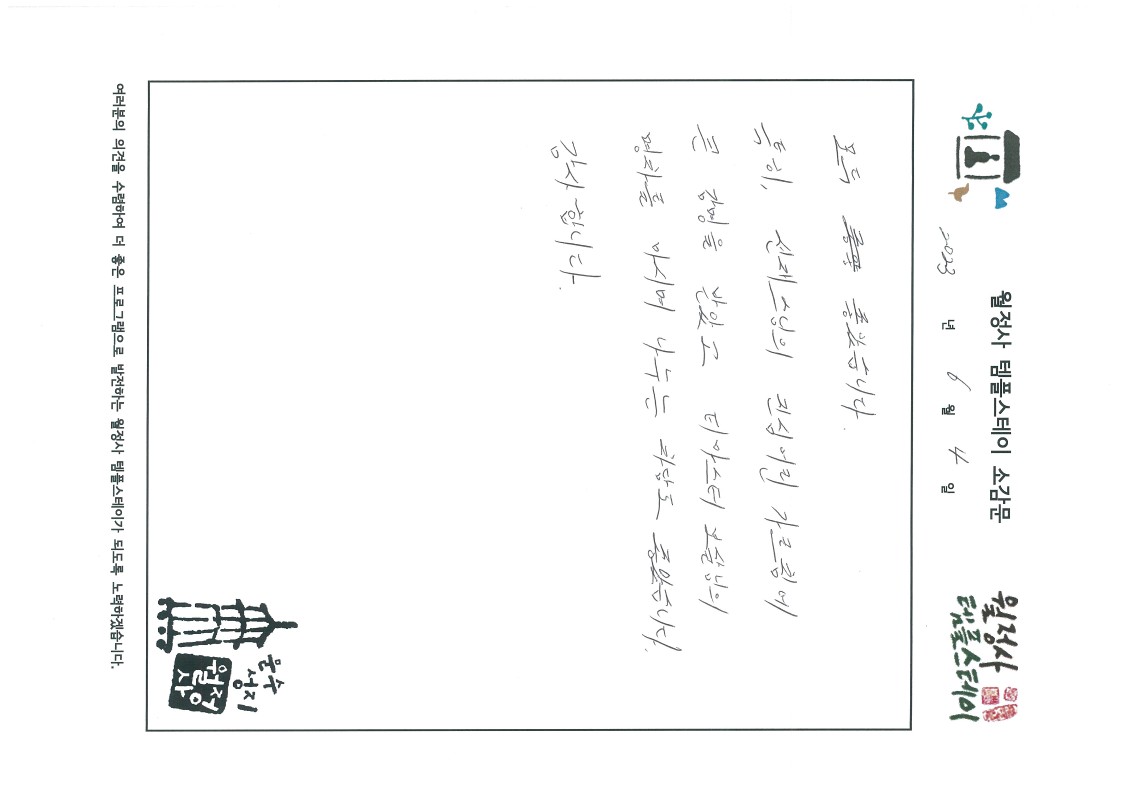 월정사 템플스테이 소감문
월정사
템플스테이
2023 년 6 월 4 일
모두 좋았습니다.
특히, 선재스님의 진심어린 가르침에
큰 감명을 받았고 티마스터 보살님의
명차를 마시며 나누는 차담도 좋았습니다.
감사합니다.
문수
성지
월정
사
여러분의 의견을 수렴하여 더 좋은 프로그램으로 발전하는 월정사 템플스테이가 되도록 노력하겠습니다.